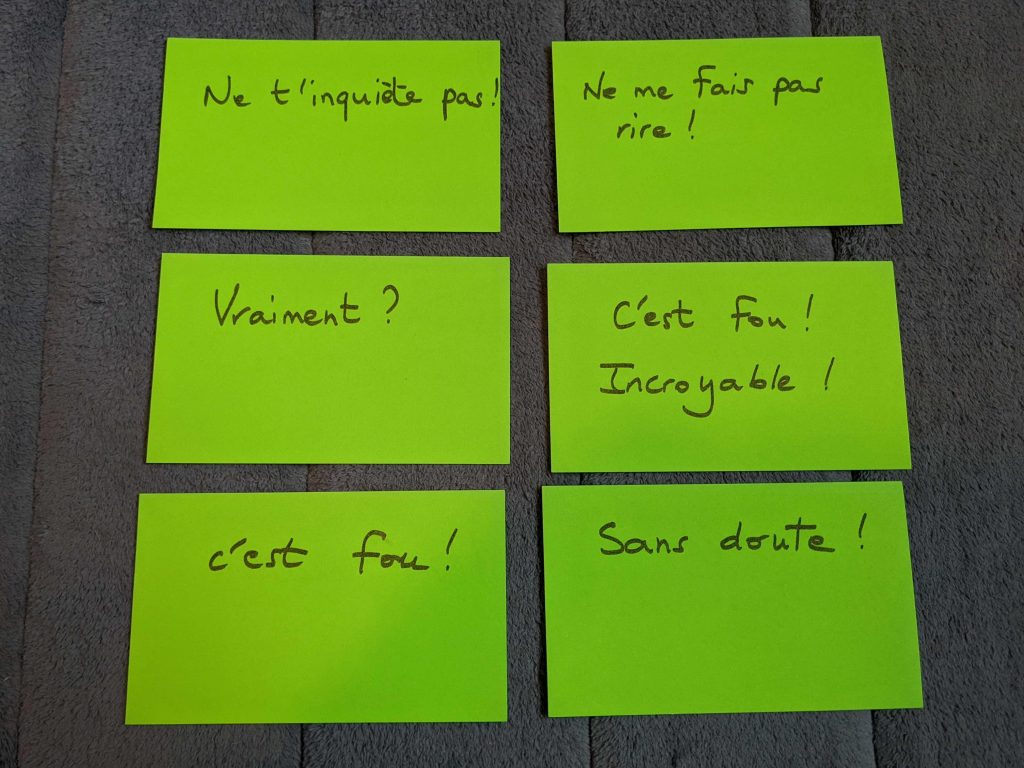 Ne t'inquiète pas !
Ne me fais pas
rire !
Vraiment ?
C'est fou !
Incroyable !
c'est fou !
Sans doute !